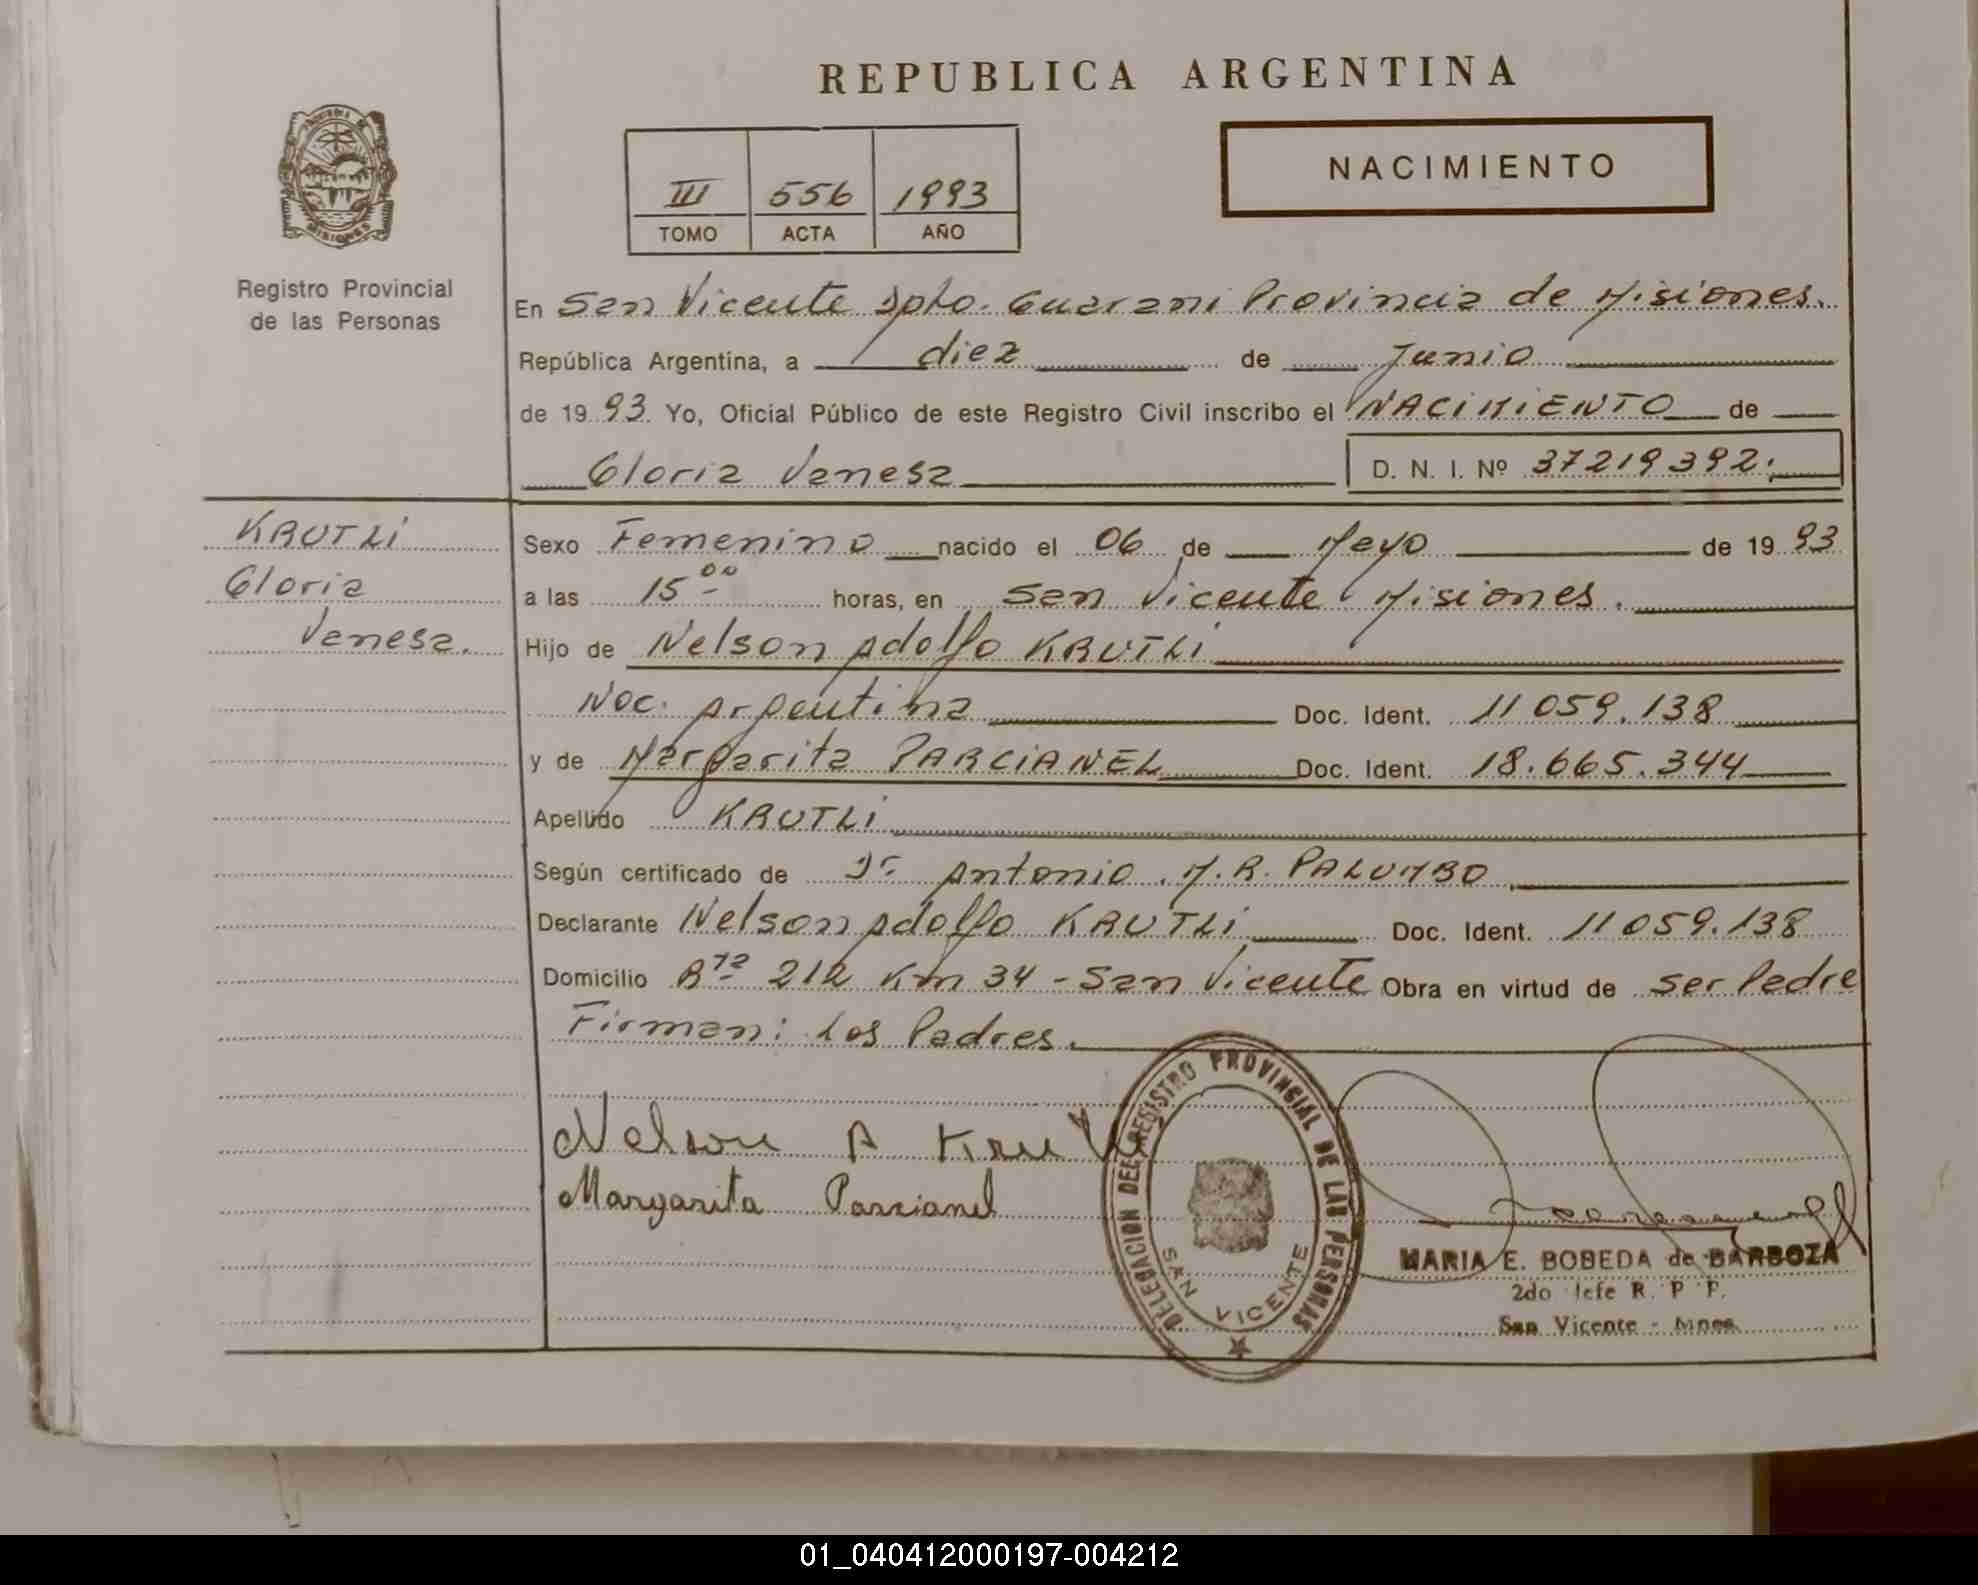 REPUBLICA ARGENTINA
NACIMIENTO
III 556 1993
TOMO ACTA AÑO
PROVINCIA DE
MISIONES
Registro Provincial
de las Personas
En San Vicente Dpto. Guarani Provincia de Misiones.
República Argentina, a diez de Junio
de 1993. Yo, Oficial Público de este Registro Civil inscribo el NACIMIENTO de
Gloria Vanesa D. N. I. Nº 37219392.
KRUTLi
Gloria
Vanesa.
Sexo Femenino nacido el 06 de Mayo de 1993
a las 15 00 horas, en San Vicente Misiones.
Hijo de Nelson Adolfo KRUTLi
Nac. Argentina Doc. Ident. 11059.138
y de Margarita PARCiANEL Doc. Ident. 18.665.344
Apellido KRUTLi
Según certificado de Dr Antonio M.R. PALUMBO
Declarante Nelson Adolfo KRUTLi Doc. Ident. 11059.138
Domicilio Rta 212 Km 34 - San Vicente Obra en virtud de ser Padre
Firman: Los Padres.
Nelson A Krutli
Margarita Parcianel
DELEGACION DEL REGISTRO PROVINCIAL DE LAS PERSONAS
SAN VICENTE
MARIA E. BOBEDA de BARBOZA
2do Jefe R. P. P.
San Vicente - Mnes.
01_040412000197-004212